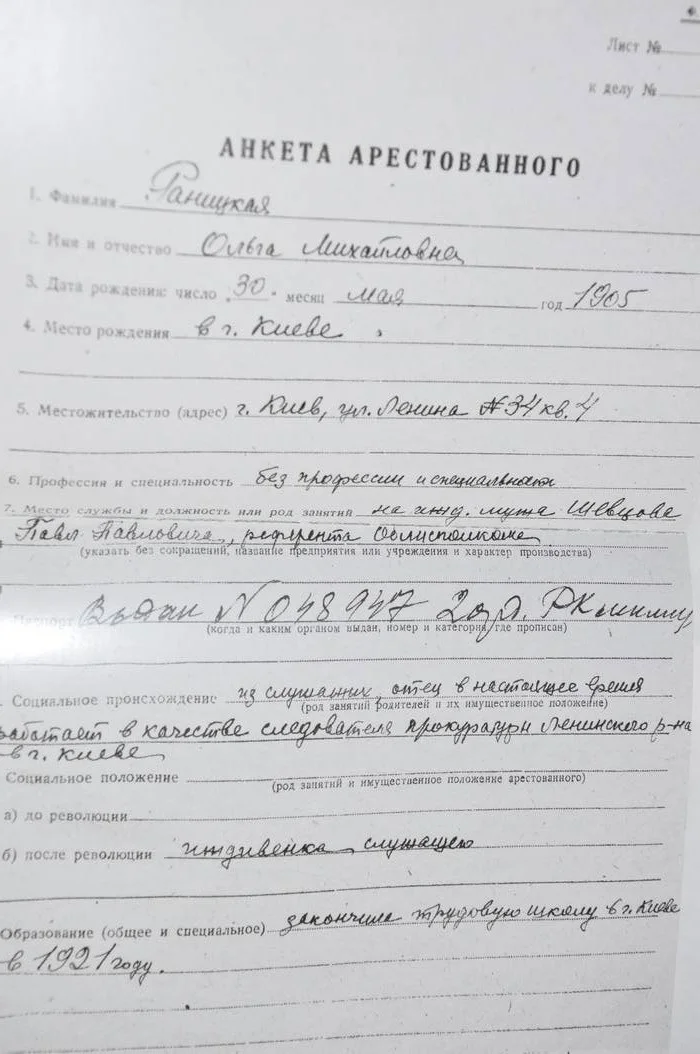 Лист №
к делу №
АНКЕТА АРЕСТОВАННОГО
1. Фамилия Раницкая
2. Имя и отчество Ольга Михайловна
3. Дата рождения: число „30" месяц мая год 1905
4. Место рождения в г. Киеве
5. Местожительство (адрес) г. Киев, ул. Ленина № 34 кв. 4
6. Профессия и специальность без профессии и специальности
7. Место службы и должность или род занятий на ижд. мужа Шевцова
Павл Павловича, референта Облисполкома
(указать без сокращений, название предприятия или учреждения и характер производства)
Паспорт Выдан N 048947 2 отд. РК милиц
(когда и каким органом выдан, номер и категория, где прописан)
Социальное происхождение из служащих, отец в настоящее время
(род занятий родителей и их имущественное положение)
работает в качестве следователя прокуратуры Ленинского р-на
в г. Киеве
Социальное положение
(род занятий и имущественное положение арестованного)
а) до революции
б) после революции иждивенка служащего
Образование (общее и специальное) закончила трудовую школу в г. Киеве
в 1921 году.